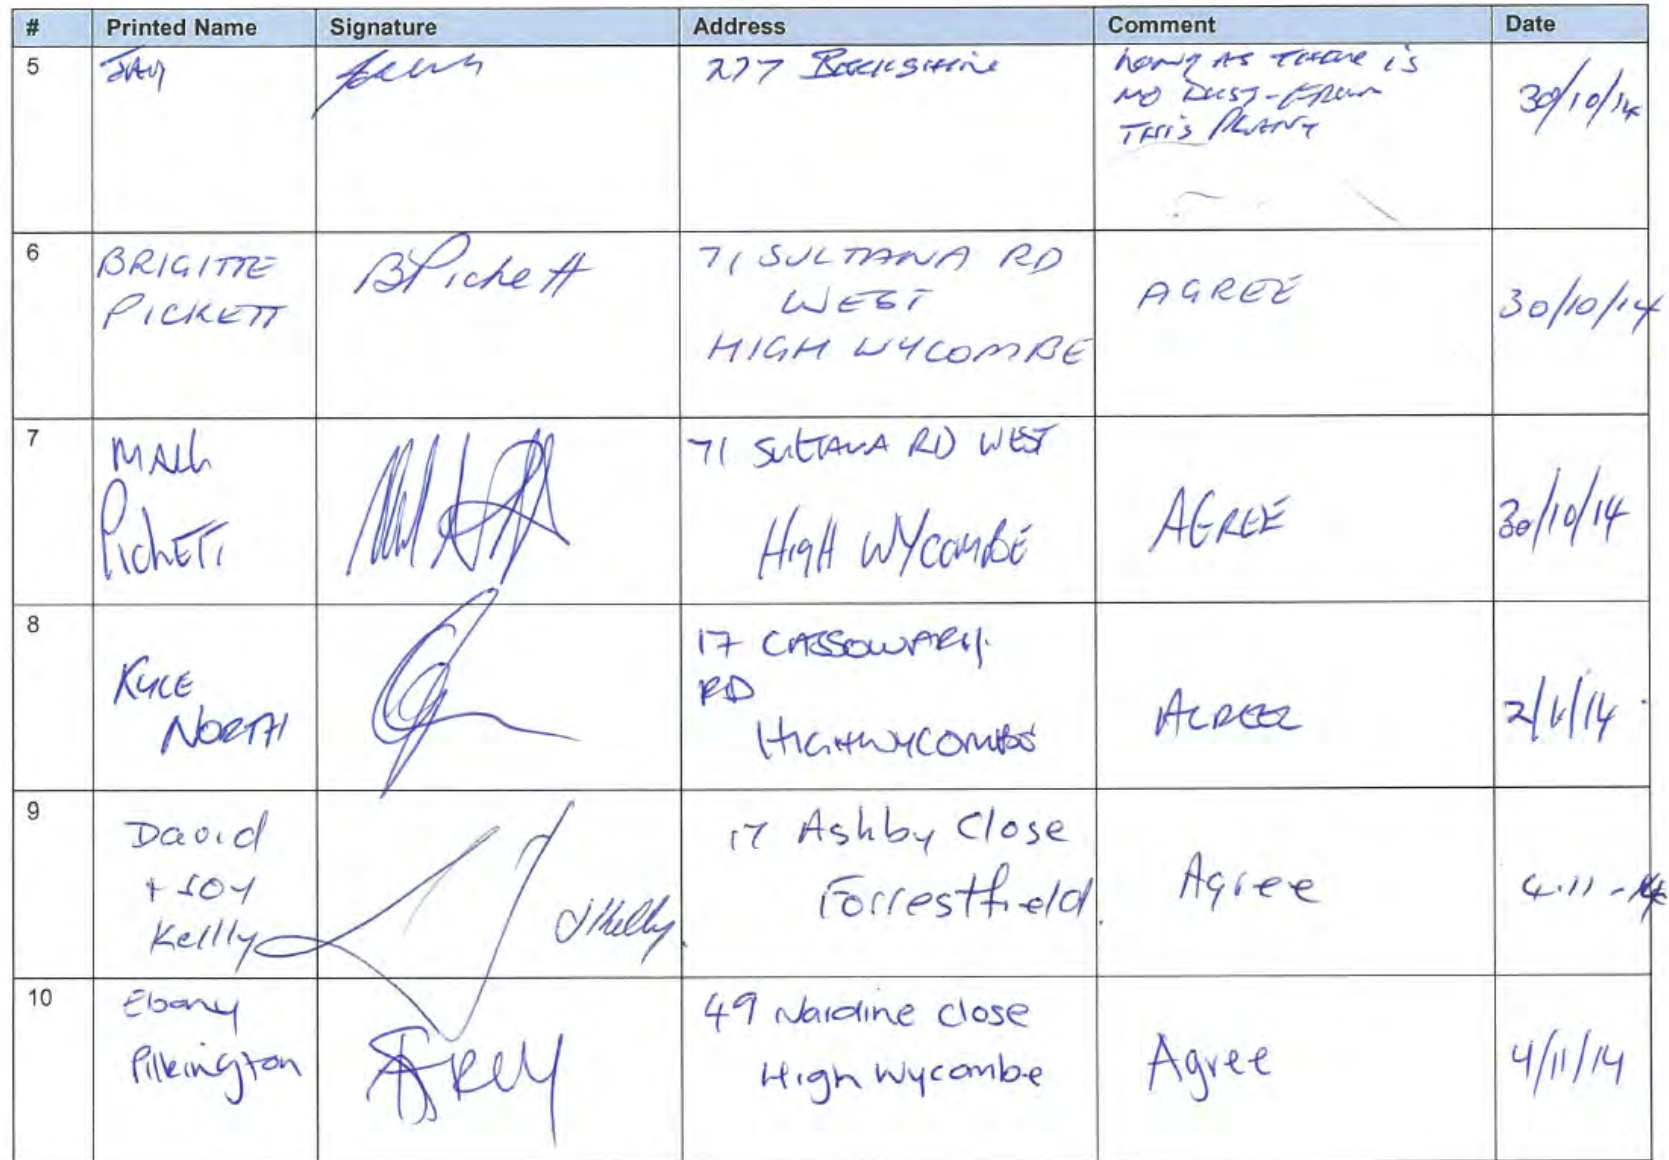 # Printed Name Signature Address Comment Date
5 JAY 277 Berkshire LONG AS THERE IS
NO DUST-FROM
THIS PLANT
30/10/14
6 BRIGITTE
PICKETT
BPickett
71 SULTANA RD
WEST
HIGH WYCOMBE
AGREE
30/10/14
7 MALL
PICKETT
71 SULTANA RD WEST
HIGH WYCOMBE
AGREE
30/10/14
8 KYLE
NORTH
17 CASSOWARY
RD
HIGHWYCOMBE
AGREE
9 David
+ JOY
Kellly
JKelly
17 Ashby Close
Forrestfield
Agree
4.11-14
10 Ebony
Pilkington
49 Nardine close
High Wycombe
Agree
4/11/14